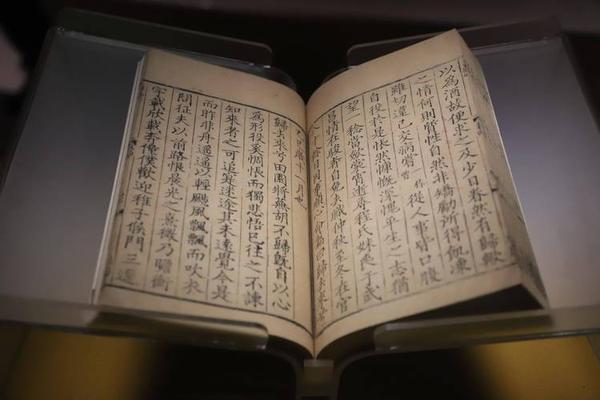 以為酒故便求之及少日眷然有歸歟
之情何則質性自然非矯勵所得飢凍
雖切違己交病嘗作從人事皆口腹
自役於是悵然慷慨深愧平生之志猶
望一稔當斂裳宵逝尋程氏妹喪于武
昌情在駿奔自免去職仲秋至冬在官
命篇曰歸去來兮
巳歲十一月也
歸去來兮田園將蕪胡不歸旣自以心
為形役奚惆悵而獨悲悟已往之不諫
知來者之可追寔迷途其未遠覺今是
而昨非舟遥遥以輕颺風飄飄而吹衣
問征夫以前路恨晨光之熹微乃瞻衡
宇載欣載奔僮僕歡迎稚子候門三逕